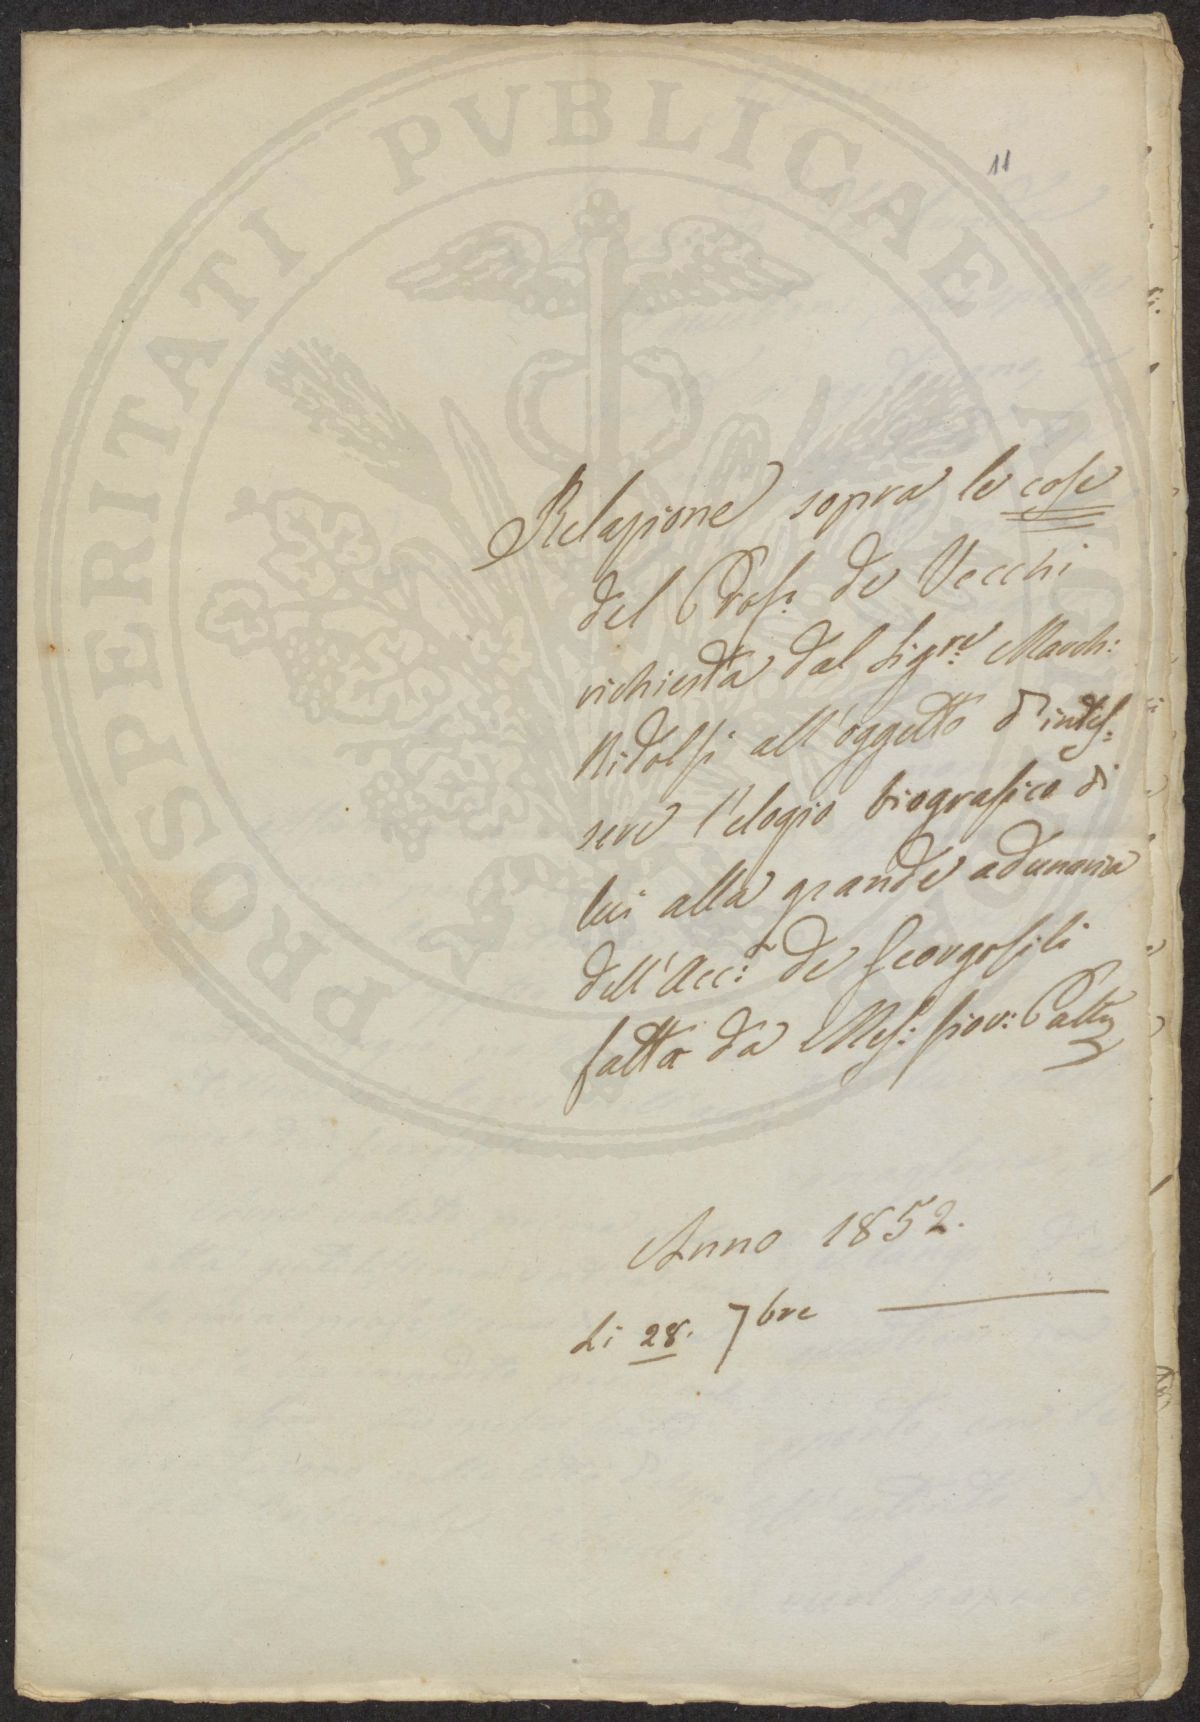 PROSPERITATI PVBLICAE AVGENDAE
11
Relazione sopra le cose
del Prof.r de Vecchi
richiesta dal Sig.re March:
Ridolfi all'oggetto d'intes=
sere l'elogio biografico di
lui alla grande adunanza
dell'Acc.a de Georgofili
fatta da Mes: Giov:
Anno 1852.
Li 28. 7bre